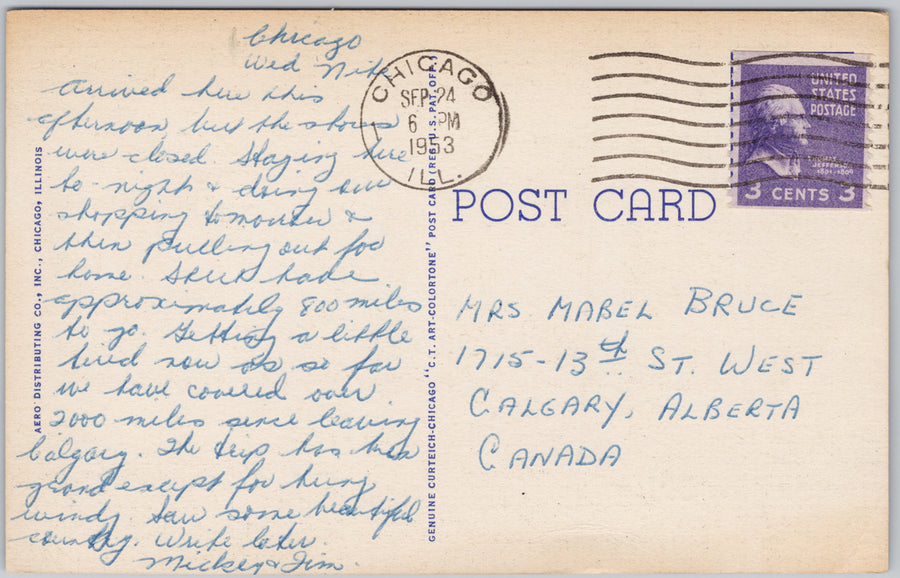 Chicago
Wed Nite
Arrived here this
afternoon, but the stores
were closed. Staying here
to-night & doing our
shopping tomorrow &
then pulling out for
home. Still have
approximately 800 miles
to go. Getting a little
tired now as so far
we have covered over
2000 miles since leaving
Calgary. The trip has been
grand except for being
windy. Saw some beautiful
country. Write later.
Mickey & Jim.
AERO DISTRIBUTING CO., INC., CHICAGO, ILLINOIS
GENUINE CURTEICH-CHICAGO "C.T. ART-COLORTONE" POST CARD (REG. U.S. PAT. OFF.)
CHICAGO
SEP 24
6 PM
1953
ILL.
UNITED
STATES
POSTAGE
JEFFERSON
1801-1809
3 CENTS 3
POST CARD
MRS MABEL BRUCE
1715-13th ST. WEST
CALGARY, ALBERTA
CANADA